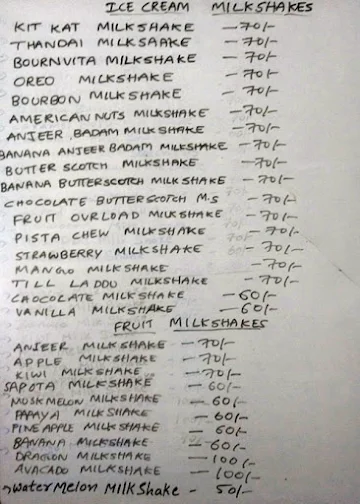 ICE CREAM MILKSHAKES
KIT KAT MILKSHAKE -70/-
THANDAI MILKSAAKE -70/-
BOURNVITA MILKSHAKE -70/-
OREO MILKSHAKE -70/-
BOURBON MILKSHAKE -70/-
AMERICAN NUTS MILKSHAKE -70/-
ANJEER BADAM MILKSHAKE -70/-
BANANA ANJEER BADAM MILKSHAKE -70/-
BUTTER SCOTCH MILKSHAKE -70/-
BANANA BUTTERSCOTCH MILKSHAKE -70/-
CHOCOLATE BUTTERSCOTCH M.S -70/-
FRUIT OVRLOAD MILKSHAKE -70/-
PISTA CHEW MILKSHAKE -70/-
STRAWBERRY MILKSHAKE -70/-
MANGO MILKSHAKE -70/-
TILL LADDU MILKSHAKE -70/-
CAOCOLATE MILKSHAKE -60/-
VANILLA MILKSHAKE -60/-
FRUIT MILKSHAKES
ANJEER MILKSHAKE -70/-
APPLE MILKSHAKE -70/-
KIWI MILKSHAKE -70/-
SAPOTA MILKSHAKE -60/-
MUSKMELON MILKSHAKE -60/-
PAPAYA MILKSHAKE -60/-
PINEAPPLE MILKSHAKE -60/-
BANANA MILKSHAKE -60/-
DRAGON MILKSHAKE -100/-
AVACADO MILKSHAKE -100/-
waterMelon MilkShake - 50/-